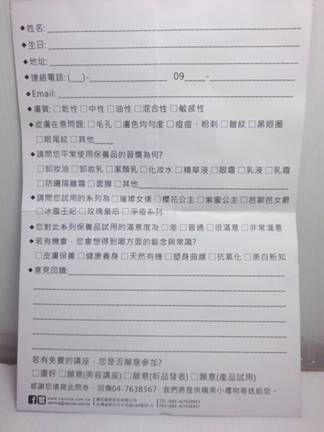 ◆姓名:
◆生日:
◆地址:
◆連絡電話: (___)- 09_____-
◆Email:
◆膚質: □乾性 □中性 □油性 □混合性 □敏感性
◆皮膚在意問題: □毛孔 □膚色均勻度 □痘痘、粉刺 □皺紋 □黑眼圈
□眼尾紋 □其他
◆請問您平常使用保養品的習慣為何?
□卸妝油 □卸妝乳 □潔顏乳 □化妝水 □精華液 □眼霜 □乳液 □乳霜
□防曬隔離霜 □面膜 □其他
◆請問您試用的系列為 □璀璨女伶 □櫻花公主 □紫蜜公主 □芭歐芭女爵
□冰雪王妃 □玫瑰皇后 □淨痘系列
◆您對此系列保養品試用的滿意度為 □差 □普通 □很滿意 □非常滿意
◆若有機會，您會想得到哪方面的觀念與常識?
□皮膚保養 □健康養身 □天然有機 □塑身曲線 □抗氧化 □美白新知
◆意見回饋:
若有免費的講座，您是否願意參加?
□還好 □願意(美容講座) □願意(新品發表) □願意(產品試用)
感謝您填寫此問卷，回傳04-7638367 我們將提供精美小禮物寄送給您。